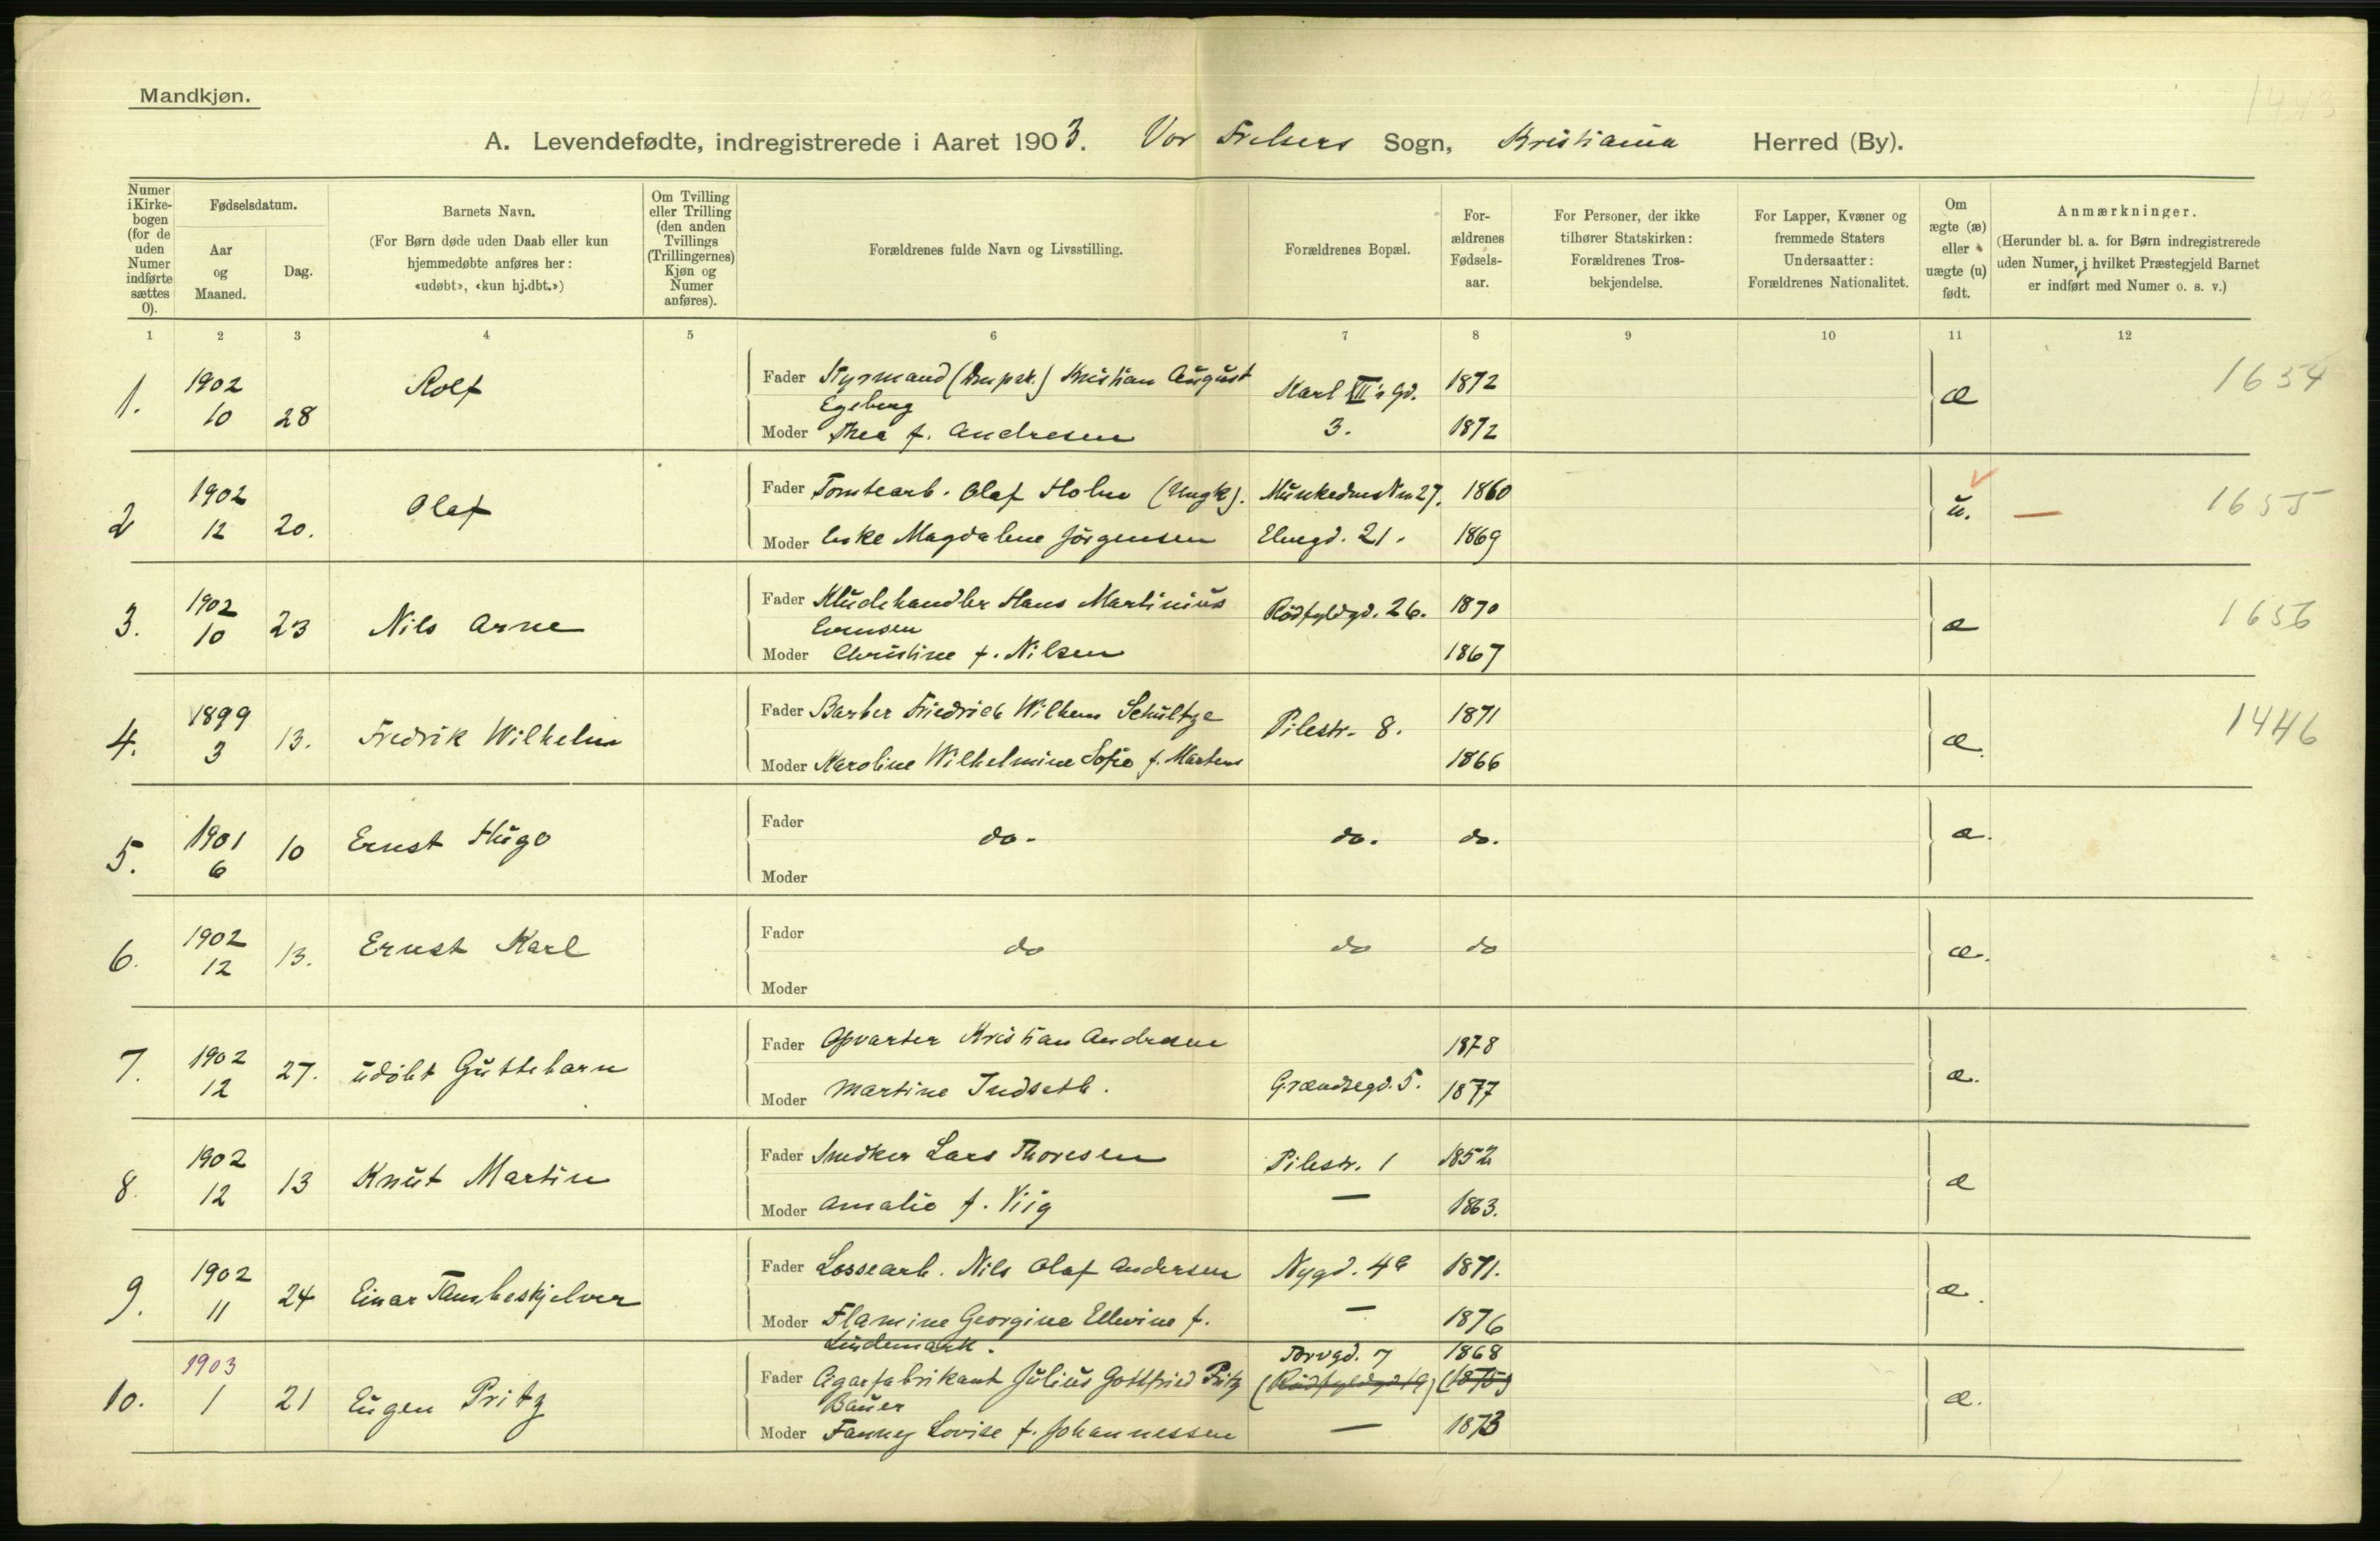 Mandkjøn.
1443
A. Levendefødte, indregistrerede i Aaret 1903. Vor Frelsers Sogn, Kristiania Herred (By).
Numer i Kirkebogen (for de uden Numer indførte sættes 0).
Fødselsdatum.
Aar og Maaned.
Dag.
Barnets Navn.
(For Børn døde uden Daab eller kun
hjemmedøbte anføres her:
«udøbt», «kun hj.dbt.»)
Om Tvilling
eller Trilling
(den anden
Tvillings
(Trillingernes)
Kjøn og
Numer
anføres).
Forældrenes fulde Navn og Livsstilling.
Forældrenes Bopæl.
For-
ældrenes
Fødsels-
aar.
For Personer, der ikke
tilhører Statskirken:
Forældrenes Tros-
bekjendelse.
For Lapper, Kvæner og
fremmede Staters
Undersaatter:
Forældrenes Nationalitet.
Om
ægte (æ)
eller
uægte (u)
født.
Anmærkninger.
(Herunder bl. a. for Børn indregistrerede
uden Numer, i hvilket Præstegjeld Barnet
er indført med Numer o. s. v.)
1 2 3 4 5 6 7 8 9 10 11 12
1. 1902 10 28 Rolf
Fader Styrmand Kristian August Egeberg Karl XII's Gd. 3. 1872 æ 1654
Moder Thea f. Andresen 1872
2 1902 12 20. Olaf
Fader Tomtearb. Olaf Holm (Ungk). 27. 1860 u. — 1655
Moder Magdalene Jörgensen Elvegd. 21. 1869
3. 1902 10 23 Nils Arne
Fader Kludehandler Hans Martinius Evensen Rödfyldgd. 26. 1870 æ 1656
Moder Christine f. Nilsen 1867
4. 1899 3 13. Fredrik Wilhelm
Fader Barber Friedrich Wilhem Schultze Pilestr. 8. 1871 æ. 1446
Moder Karoline Wilhelmine Sofie f. Martens 1866
5. 1901 6 10 Ernst Hugo
Fader do. do. do. æ.
Moder
6. 1902 12 13. Ernst Karl
Fader do do do æ.
Moder
7. 1902 12 27. udöbt Guttebarn
Fader Opvarter Kristian Andresen 1878 æ.
Moder Martine Indseth. Grændsegd. 5. 1877
8. 1902 12 13 Knut Martin
Fader Snedker Lars Thoresen Pilestr. 1 1852 æ
Moder Amalie f. Viig — 1863.
9. 1902 11 24 Einar Tambeskjelver
Fader Lossearb. Nils Olaf Andersen Nygd. 4a 1871. æ.
Moder Flamine Georgine Ellevine f. Lindemark. — 1876
10. 1903 1 21 Eugen Pritz
Fader Cigarfabrikant Julius Gottfried Pritz Bauer Torvgd. 7 (Rödfyldgd 19) 1868 (1875) æ.
Moder Fanny Lovise f. Johannessen — 1873